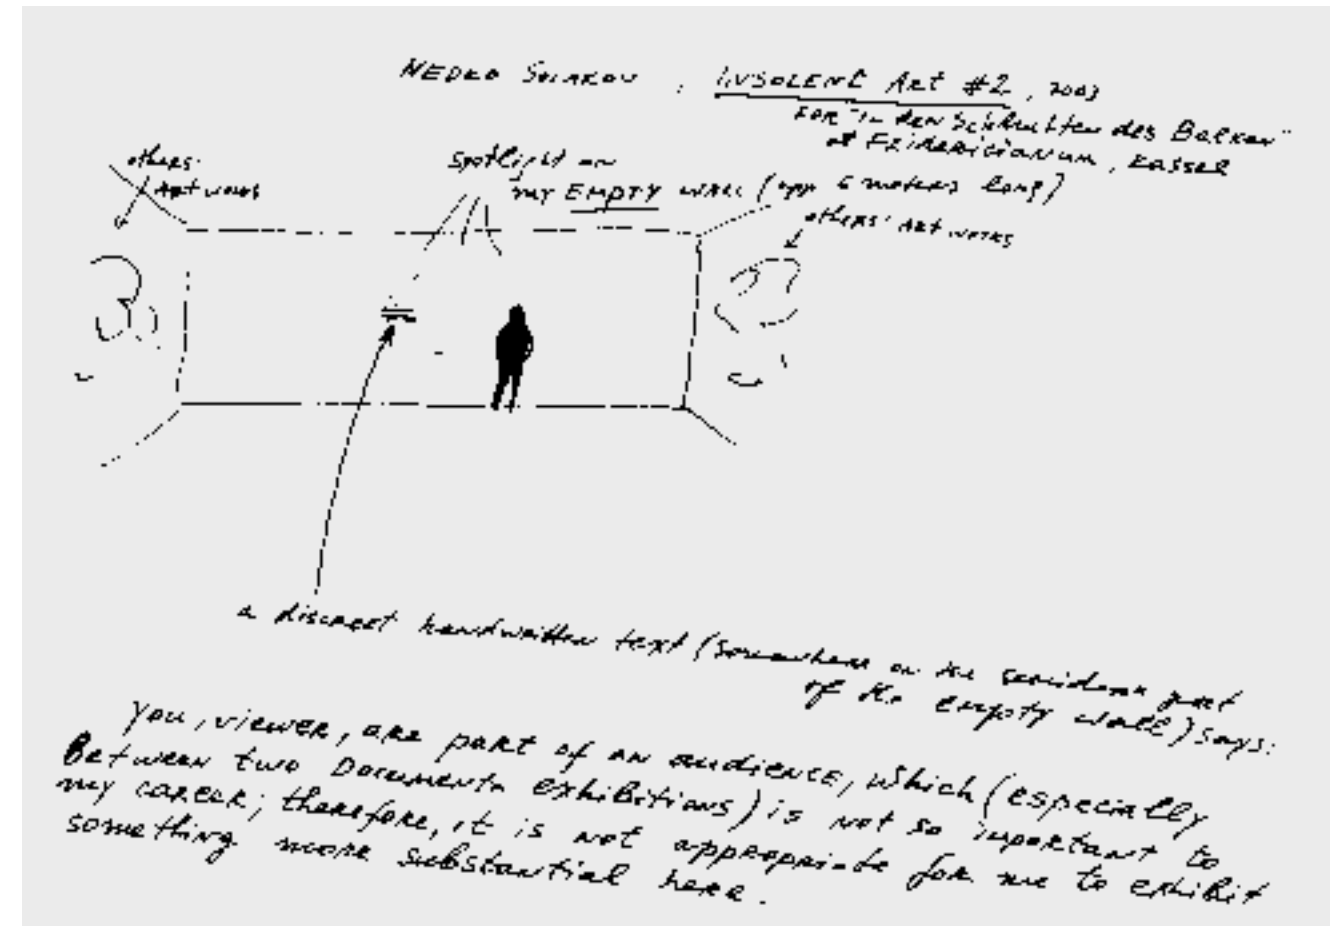 NEDKO SOLAKOV, INSOLENT ART #2, 2003
FOR "in den Schluchten des Balkan"
at FRIDERICIANUM, KASSEL
others'
ART works
spotlight on
my EMPTY WALL (app 6 meters long)
others' ART works
a discreet handwritten text (somewhere on the semidark part
of the empty wall) says:
you, viewer, are part of an audience, which (especially
Between two Documenta exhibitions) is not so important to
my career; therefore, it is not appropriate for me to exhibit
something more substantial here.